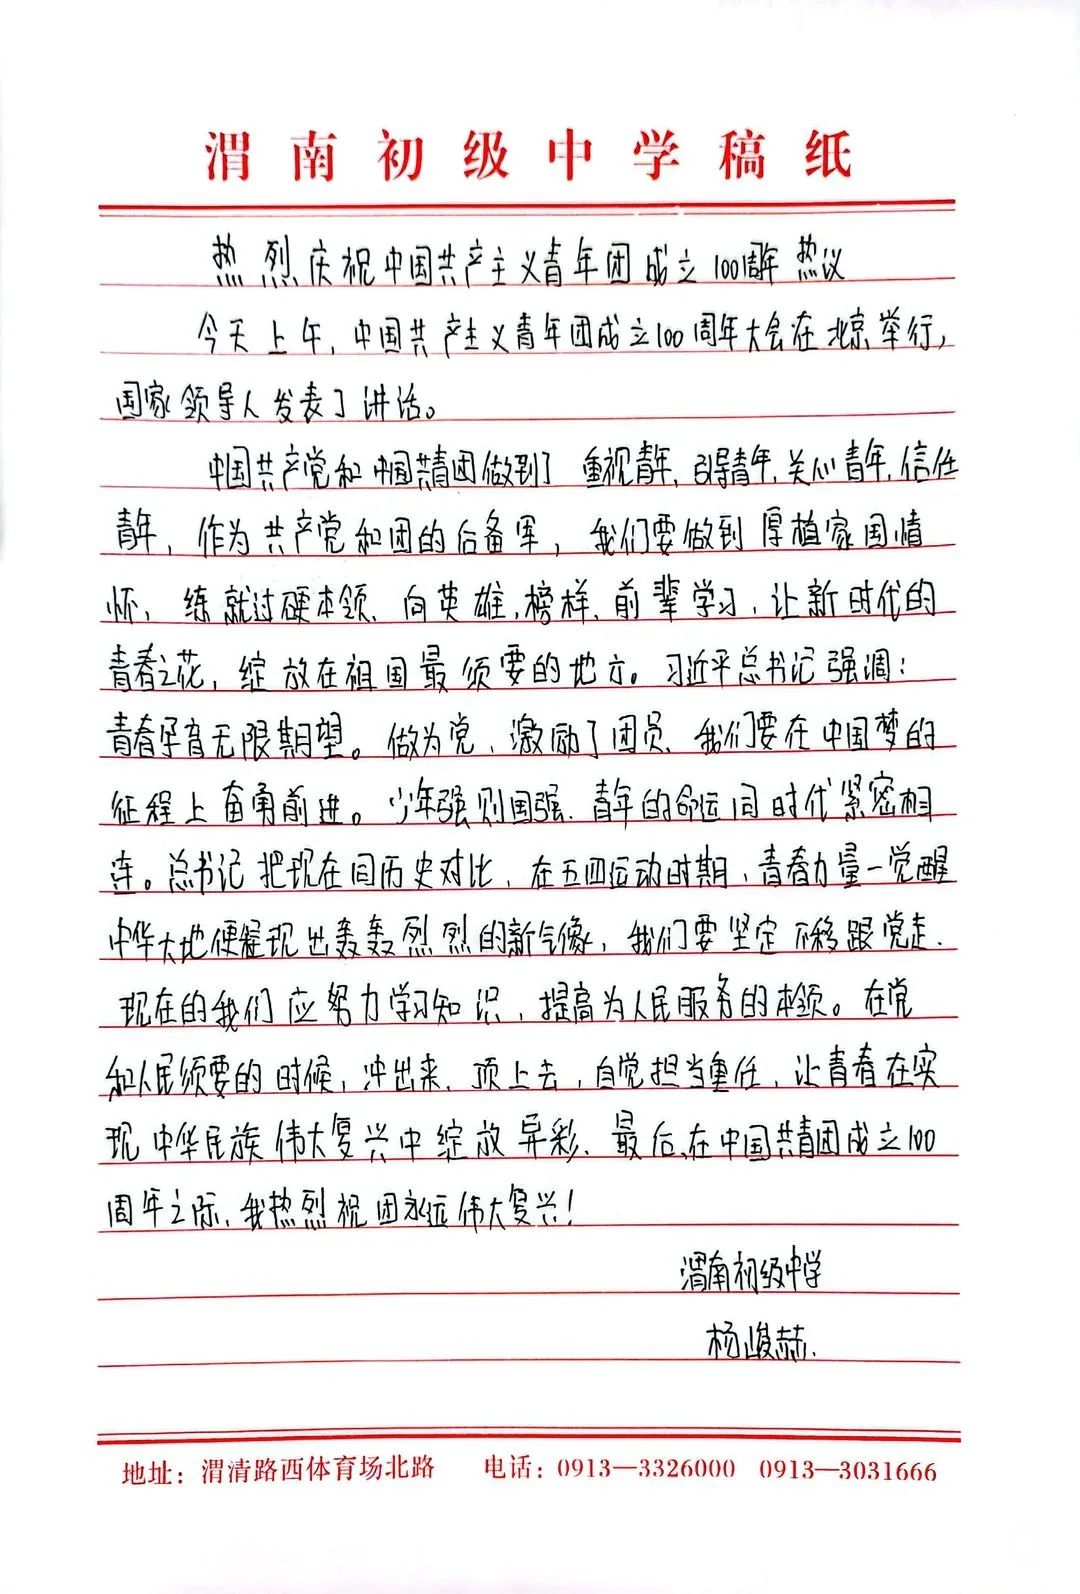 渭南初级中学稿纸
热烈庆祝中国共产主义青年团成立100周年热议
今天上午，中国共产主义青年团成立100周年大会在北京举行，
国家领导人发表了讲话。
中国共产党和中国共青团做到了重视青年，引导青年，关心青年，信任
青年，作为共产党和团的后备军，我们要做到厚植家国情
怀，练就过硬本领、向英雄，榜样、前辈学习，让新时代的
青春之花，绽放在祖国最须要的地方。习近平总书记强调：
青春孕育无限期望。做为党，激励了团员、我们要在中国梦的
征程上奋勇前进。少年强则国强、青年的命运同时代紧密相
连。总书记把现在同历史对比，在五四运动时期，青春力量一觉醒
中华大地便展现出轰轰烈烈的新气像，我们要坚定不移跟党走、
现在的我们应努力学习知识，提高为人民服务的本领。在党
和人民须要的时候，冲出来、顶上去，自觉担当重任，让青春在实
现中华民族伟大复兴中绽放异彩、最后，在中国共青团成立100
周年之际，我热烈祝团永远伟大复兴！
渭南初级中学
杨峻赫.
地址：渭清路西体育场北路 电话：0913—3326000 0913—3031666